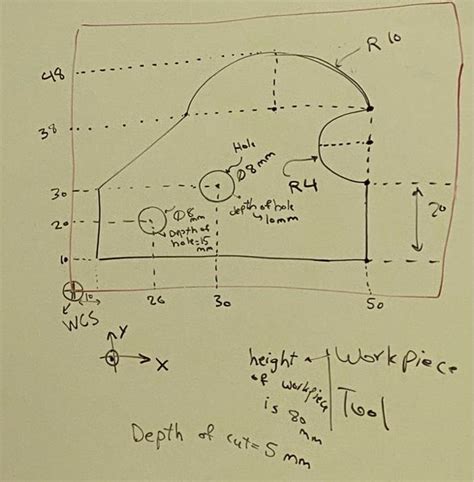 48
R 10
38
Hole
Ø8mm
R4
depth of hole
10mm
30
Ø8
mm
Depth of
hole=15
mm
20
20
10
10
26
30
50
WCS
Y
X
height
of workpiece
is 80
mm
Workpiece
Tool
Depth of cut= 5 mm